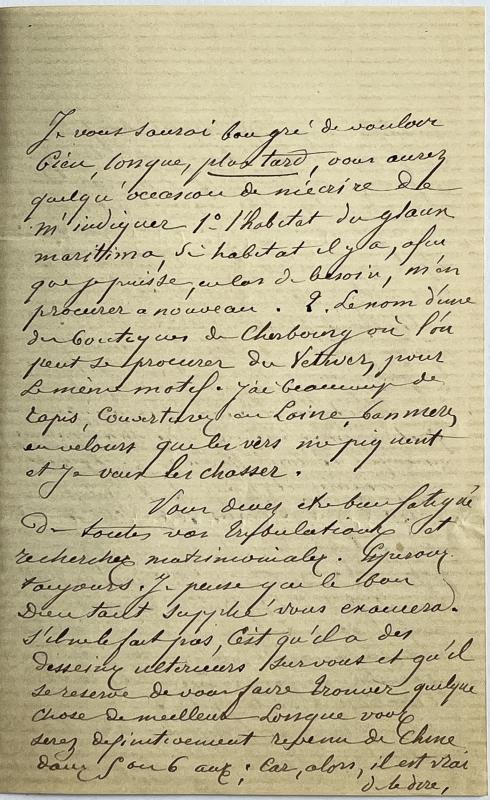 Je vous saurai bon gré de vouloir
bien, lorsque, plus tard, vous aurez
quelqu'occasion de m'écrire de
m'indiquer 1º l'habitat du glaux
maritima, si habitat il y a, afin
que je puisse, en cas de besoin, m'en
procurer à nouveau. 2. Le nom d'une
des boutiques de Cherbourg où l'on
peut se procurer du Vetiver, pour
le même motif. J'ai beaucoup de
tapis, couvertures en laine, bannieres
en velours que les vers me piquent
et je veux les chasser.
Vous devez etre bien fatigué
de toutes vos tribulations et
recherches matrimoniales. Esperons
toujours. Je pense que le bon
Dieu tant supplié vous exaucera.
S'il ne le fait pas, c'est qu'il a des
desseins ulterieurs sur vous et qu'il
se reserve de vous faire trouver quelque
chose de meilleur lorsque vous
serez definitivement revenu de Chine
dans 5 ou 6 ans ; car, alors, il est vrai
de le dire,